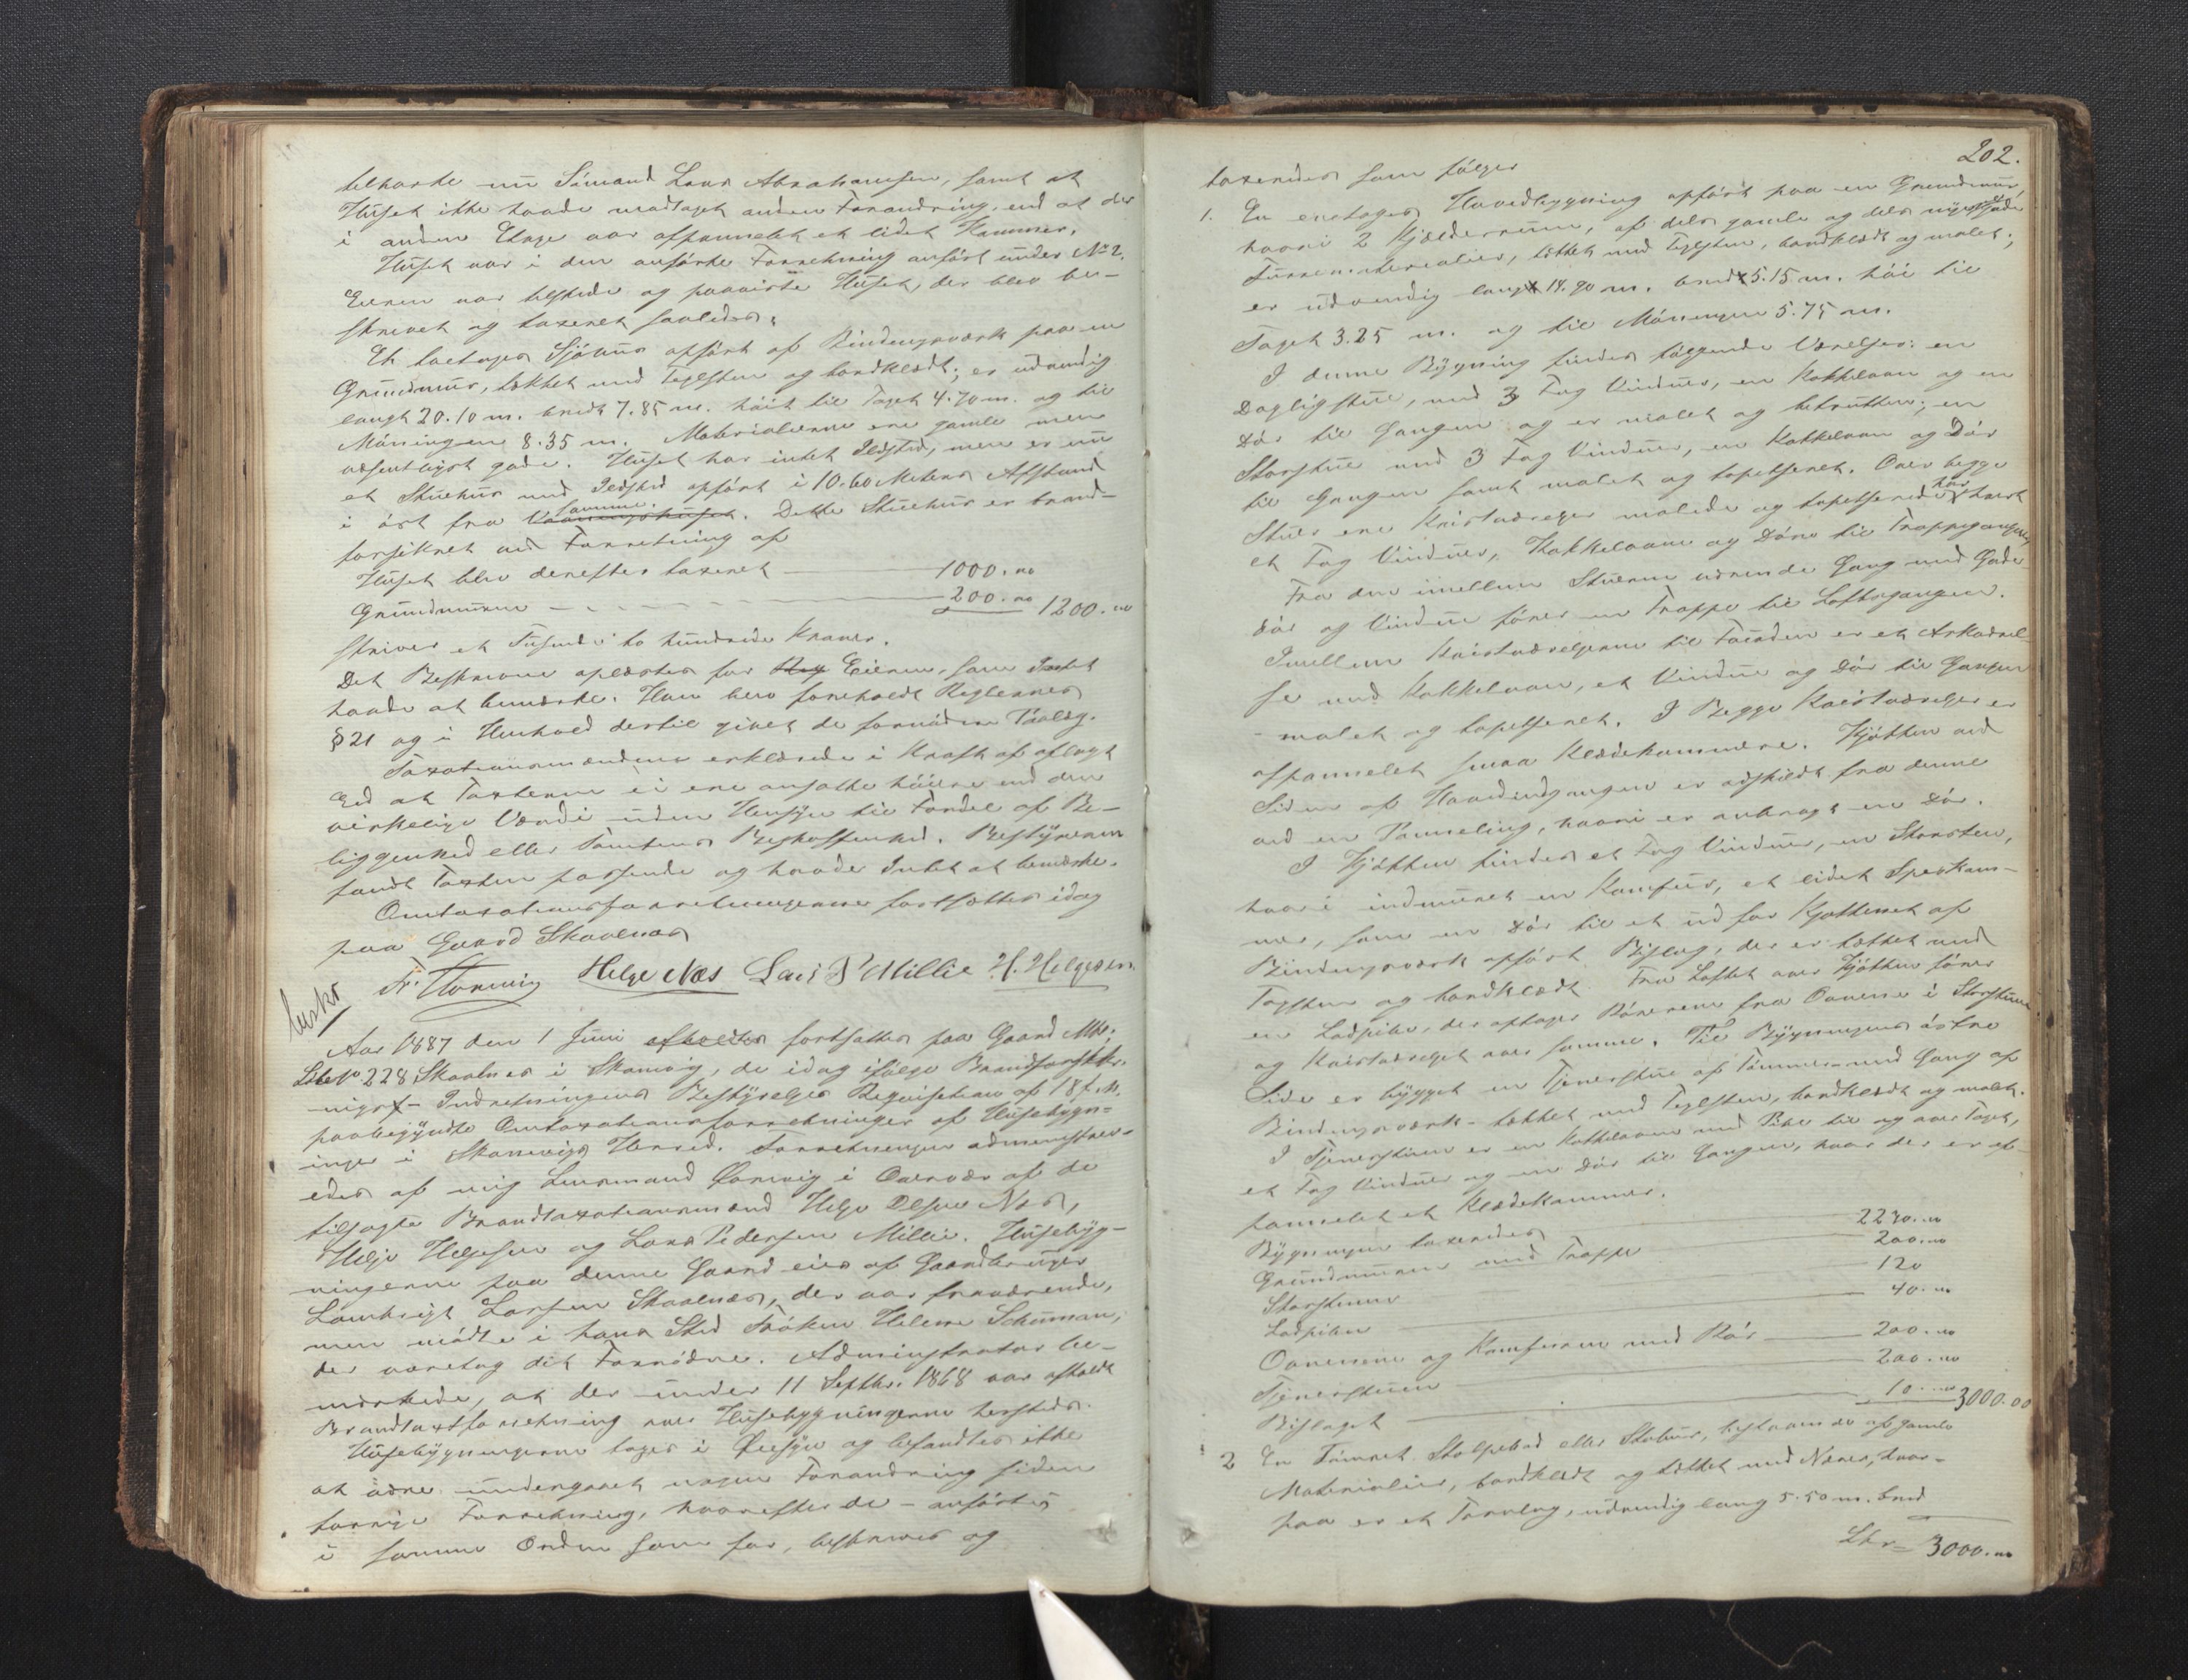 tilhørte nu Sømand Lars Abrahamsen, samt at
Huset ikke havde modtaget anden Forandring, end at der
i anden Etage var afpannelet et lidet Kammer.
Huset var i den anførte Forretning anført under No 2.
Eieren var tilstede og paaviste Huset, der blev be-
skrevet og taxeret saaledes:
Et toetages Sjøhus opført af Bindingsværk paa en
Grundmur, tækket med Teglsten og bordklædt; er udvendig
langt 20.10 m. bredt 7.85 m. høit til Taget 4.70 m. og til
Møningen 8.35 m. Materialierne ere gamle men
væsentligst gode. Huset har intet Ildsted, men er nu
et Stuehus med Ildsted opført i 10.60 Meters Afstand
i øst fra Vaaningshuset samme. Dette Stuehus er brand-
forsikret ved Forretning af
Huset blev derefter taxeret 1000.00
Grundmuren 200.00 1200.00
skriver et Tusende to hundrede Kroner.
Det Beskrevne oplæstes for Eieren, som Intet
havde at bemærke. Han blev foreholdt Reglernes
§ 21 og i Henhold dertil givet de fornødne Paalæg.
Taxationsmændene erklærede i Kraft af aflagt
Eed at Taxterne ei ere ansatte høiere end den
virkelige Værdi uden Hensyn til Fordel af Be-
liggenhed eller Tomtens Beskaffenhed. Bestyreren
fandt Taxten passende og havde Intet at bemærke.
Omtaxationsforretningerne fortsættes idag
paa Gaard Skaalnæs
Helge Næs Lars P Millie H. Helgesen
Aar 1887 den 1 Juni afholdtes fortsattes paa Gaard Mtr.
Løbe No 228 Skaalnes i Skanevig, de idag ifølge Brandforsikr-
nings-Indretningens Bestyrelses Reqvisition af 18 f. M.
paabegyndte Omtaxationsforretninger af Husebygn-
inger i Skanevigs Herred. Forretningen administrer-
edes af mig Lensmand i Overvær af de
tilsagte Brandtaxationsmænd Helge Olsen Næs,
Helge Helgesen og Lars Pedersen Millie. Husebyg-
ningerne paa denne Gaard eies af Gaardbruger
Lambrigt Larsen Skaalnæs, der var fraværende,
men mødte i hans Sted Frøken Helene Schuman,
der varetog det Fornødne. Administrator be-
mærkede, at der under 11 Septbr. 1868 var afholdt
Brandtaxtforretning over Husebygningerne hersteds.
Husebygningerne toges i Øiesyn og befandtes ikke
at være undergaaet nogen Forandring siden
forrige Forretning, hvorefter de - anførtes
i samme Orden som før, beskrives og
202.
taxeredes som følger
1. En enetages Hovedbygning opført paa en Grundmur,
hvori 2 Kjælderrum, af dels gamle og dels nye gode
Furematerialier, tækket med Teglsten, bordklædt og malet;
er udvendig langt 14.90 m. bredt 5.15 m. høi til
Taget 3.25 m. og til Møningen 5.75 m.
I denne Bygning findes følgende Værelser: en
Dagligstue, med 3 Fag Vinduer, en Kakkelovn og en
Dør til Gangen og er malet og betrukken; en
Storstue med 3 Fag Vinduer, en Kakkelovn og Dør
til Gangen samt malet og tapetseret. Over begge
Stuer ere Kvistværelser malede og tapetserede har hvert
et Fag Vinduer, Kakkelovne og Døre til Trappegangen.
Fra den imellem Stuerne værende Gang med Gade
Dør og Vindue fører en Trappe til Loftsgangen.
Imellem Kvistværelserne til Facaden er et Arkværel-
se med Kakkelovn, et Vindue og Dør til Gangen
malet og tapetseret. I Begge Kvistværelser er
afpannelet smaa Klædekammere. Kjøkken ved
Siden af Hovedindgangen er adskildt fra denne
ved en Panneling, hvori er anbragt en Dør.
I Kjøkken findes et Fag Vinduer, en Skorsten,
hvori indmuret en Komfur, et lidet Speskam-
mer, som en Dør til et ud for Kjøkkenet af
Bindingsværk opført Bislag, der er tækket med
Tagsten og bordklædt. Fra Loftet over Kjøkken fører
en Ladpibe, der optager Rørene fra Ovnene i Storstuen
og Kvistværelset over samme. Til Bygningens østre
Side er bygget en Tjenerstue af Tømmer- med Gang af
Bindingsværk - tækket med Teglsten, bordklædt og malet.
I Tjenerstuen er en Kakkelovn med Pibe til og over Taget,
et Fag Vinduer og en Dør til Gangen, hvor der er af-
pannelet et Klædekammer.
Bygningen taxeredes 2230.00
Grundmuren med Trappe 200.00
Skorstenen 120
Ladpiben 40.00
Ovnene og Komfuren med Rør 200.00
Tjenerstuen 200.00
Bislaget 10.00 3000.00
2 En Tømret Stolpebod eller Stabur, bestaaende af gamle
Materialier, bordklædt og tækket med Næver, hvor-
paa er et Torvlag, udvendig lang 5.50 m. bred
Lbr 3000.00